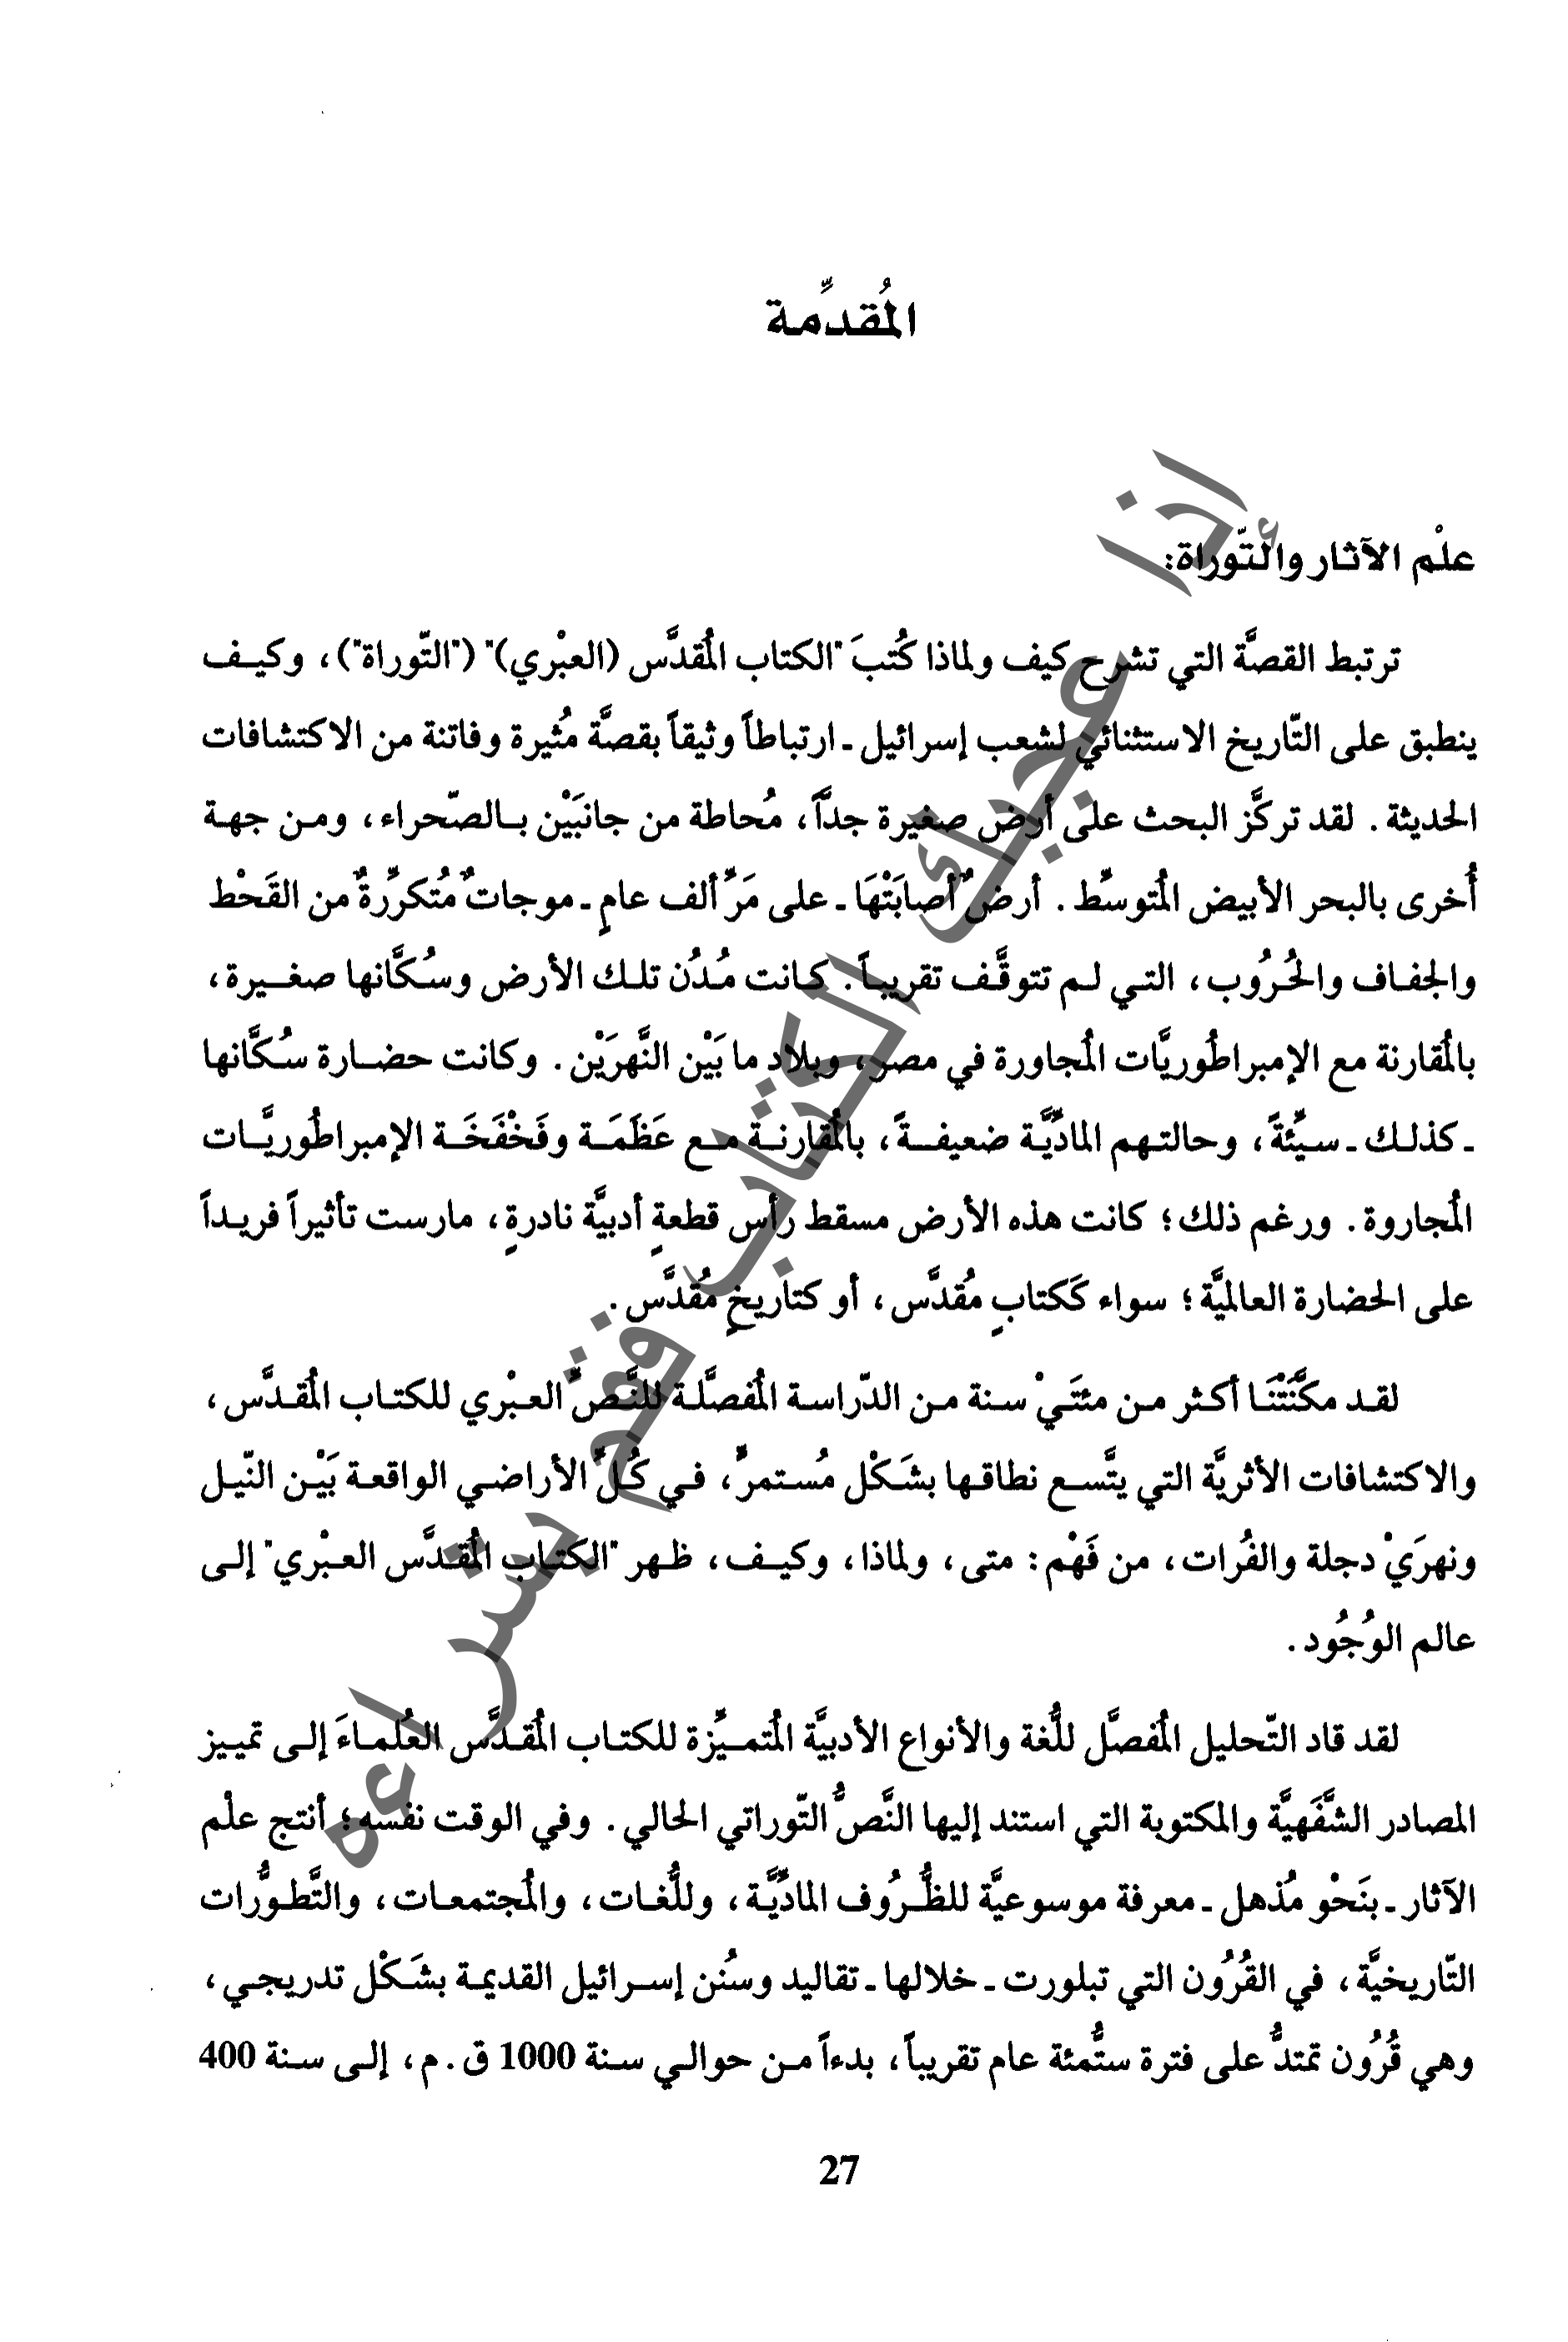 المُقدِّمة
علْم الآثار والتّوراة:
ترتبط القصَّة التي تشرح كيف ولماذا كُتبَ "الكتاب المُقدَّس (العبْري)" ("التّوراة")، وكيف
ينطبق على التّاريخ الاستثنائي لشعب إسرائيل ـ ارتباطاً وثيقاً بقصَّة مُثيرة وفاتنة من الاكتشافات
الحديثة. لقد تركَّز البحث على أرض صغيرة جدَّاً، مُحاطة من جانبَيْن بالصّحراء، ومن جهة
أُخرى بالبحر الأبيض المُتوسِّط. أرضٌ أصابَتْهَا ـ على مَرِّ ألف عامٍ ـ موجاتٌ مُتكرِّرةٌ من القَحْط
والجفاف والحُرُوب، التي لم تتوقَّف تقريباً. كانت مُدُن تلك الأرض وسُكَّانها صغيرة،
بالمُقارنة مع الإمبراطُوريَّات المُجاورة في مصر، وبلاد ما بَيْن النَّهرَيْن. وكانت حضارة سُكَّانها
ـ كذلك ـ سيِّئةً، وحالتهم المادِّيَّة ضعيفةً، بالمُقارنة مع عَظَمَة وفَخْفَخَة الإمبراطُوريَّات
المُجاروة. ورغم ذلك؛ كانت هذه الأرض مسقط رأس قطعةٍ أدبيَّة نادرةٍ، مارست تأثيراً فريداً
على الحضارة العالميَّة؛ سواء كَكتابٍ مُقدَّس، أو كتاريخٍ مُقدَّس.
لقد مكَّنَتْنَا أكثر من مئتَيْ سنة من الدّراسة المُفصَّلة للنَّصِّ العبْري للكتاب المُقدَّس،
والاكتشافات الأثريَّة التي يتَّسع نطاقها بشَكْل مُستمرٍّ، في كُلِّ الأراضي الواقعة بَيْن النّيل
ونهرَيْ دجلة والفُرات، من فَهْم: متى، ولماذا، وكيف، ظهر "الكتاب المُقدَّس العبْري" إلى
عالم الوُجُود.
لقد قاد التّحليل المُفصَّل للُّغة والأنواع الأدبيَّة المُتميِّزة للكتاب المُقدَّس العُلماءَ إلى تمييز
المصادر الشَّفَهيَّة والمكتوبة التي استند إليها النَّصُّ التّوراتي الحالي. وفي الوقت نفسه؛ أنتج علْم
الآثار ـ بنَحْو مُذهل ـ معرفة موسوعيَّة للظُّرُوف المادِّيَّة، وللُّغات، والمُجتمعات، والتَّطوُّرات
التّاريخيَّة، في القُرُون التي تبلورت ـ خلالها ـ تقاليد وسُنن إسرائيل القديمة بشَكْل تدريجي،
وهي قُرُون تمتدُّ على فترة ستُّمئة عام تقريباً، بدءاً من حوالي سنة 1000 ق.م، إلى سنة 400
27
إذا أعجبك الكتاب فقم بشراءه